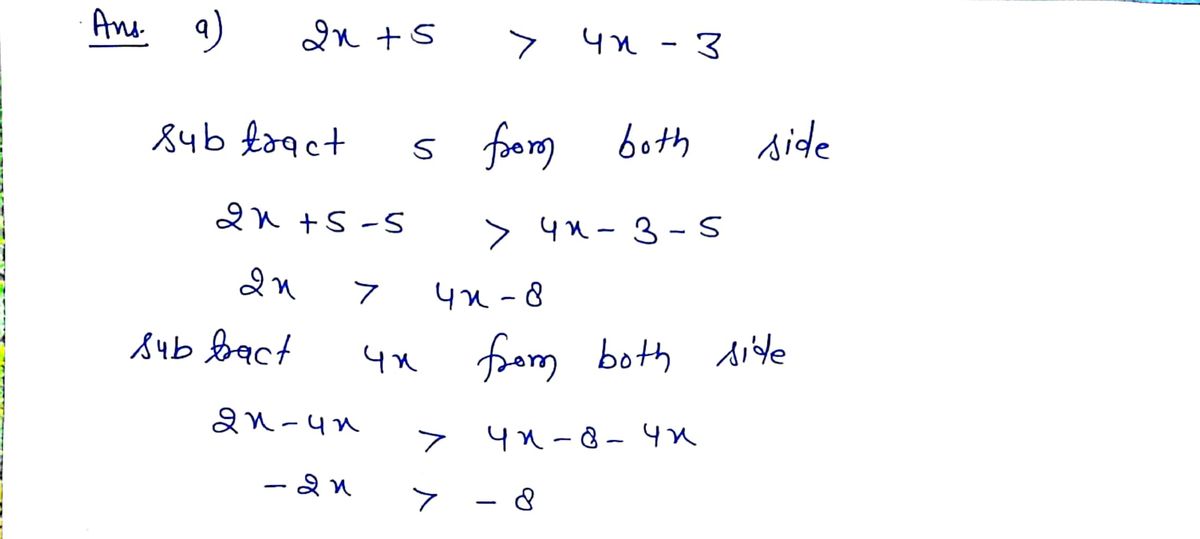 Ans. a) 2x + 5 > 4x - 3
Subtract 5 from both side
2x + 5 - 5 > 4x - 3 - 5
2x > 4x - 8
Subtract 4x from both side
2x - 4x > 4x - 8 - 4x
- 2x > - 8